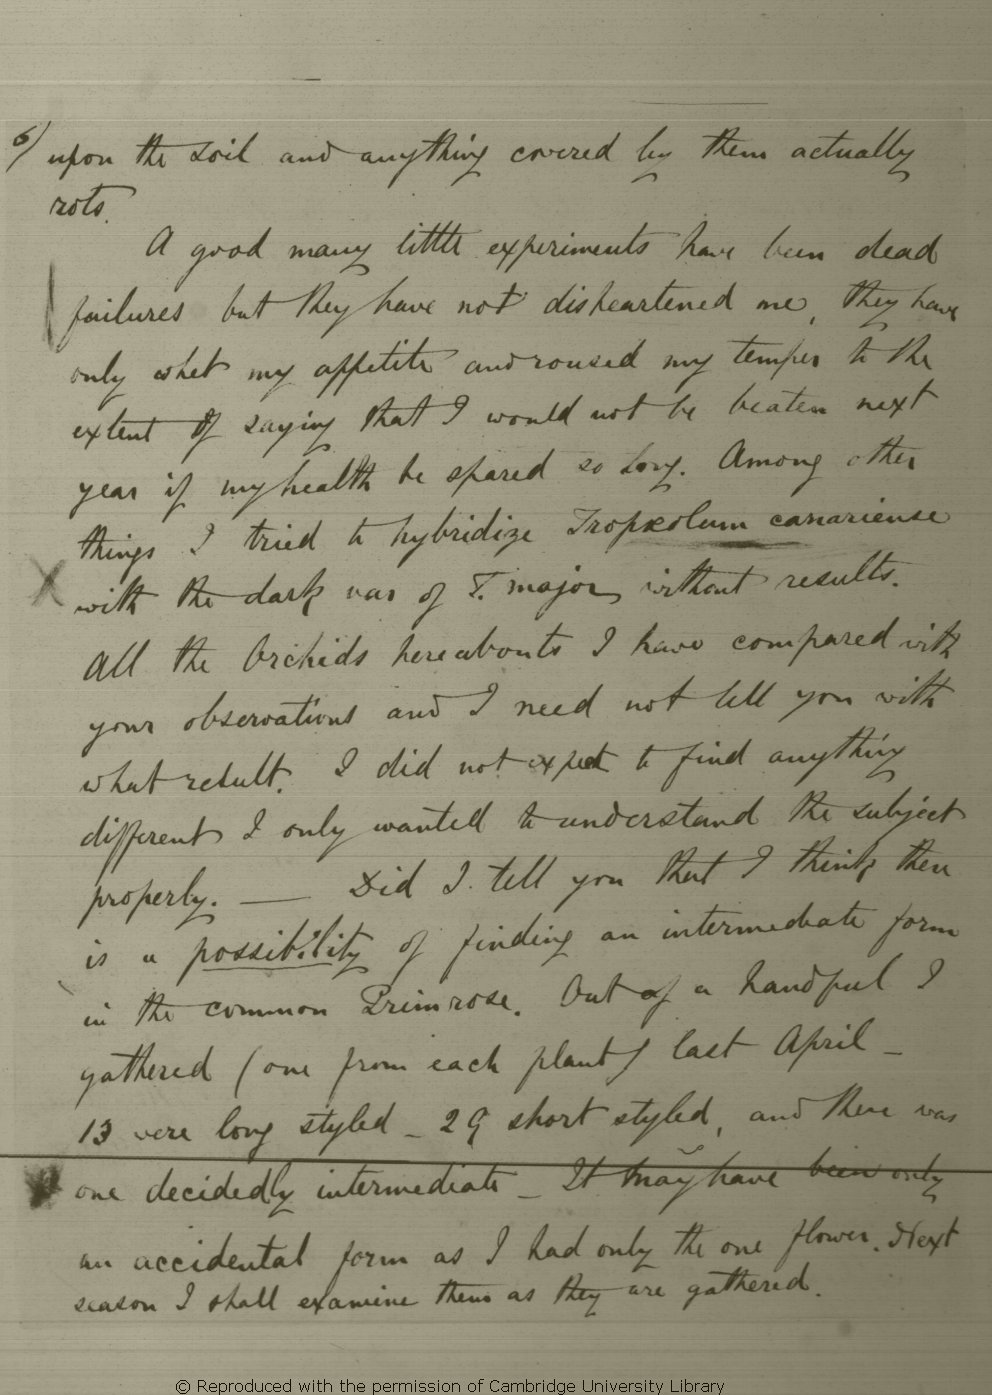 6)
upon the soil and anything covered by them actually
rots.
A good many little experiments have been dead
failures but they have not disheartened me, they have
only whet my appetite and roused my temper to the
extent of saying that I would not be beaten next
year if my health be spared so long. Among other
things I tried to hybridize Tropæolum canariense
with the dark var of T. major, without results.
All the Orchids hereabouts I have compared with
your observations and I need not tell you with
what result. I did not expect to find anything
different I only wanted to understand the subject
properly. — Did I tell you that I think there
is a possibility of finding an intermediate form
in the common Primrose. Out of a handful I
gathered (one from each plant) last April –
13 were long styled – 29 short styled, and there was
one decidedly intermediate – It may have been only
an accidental form as I had only the one flower. Next
season I shall examine them as they are gathered.
© Reproduced with the permission of Cambridge University Library